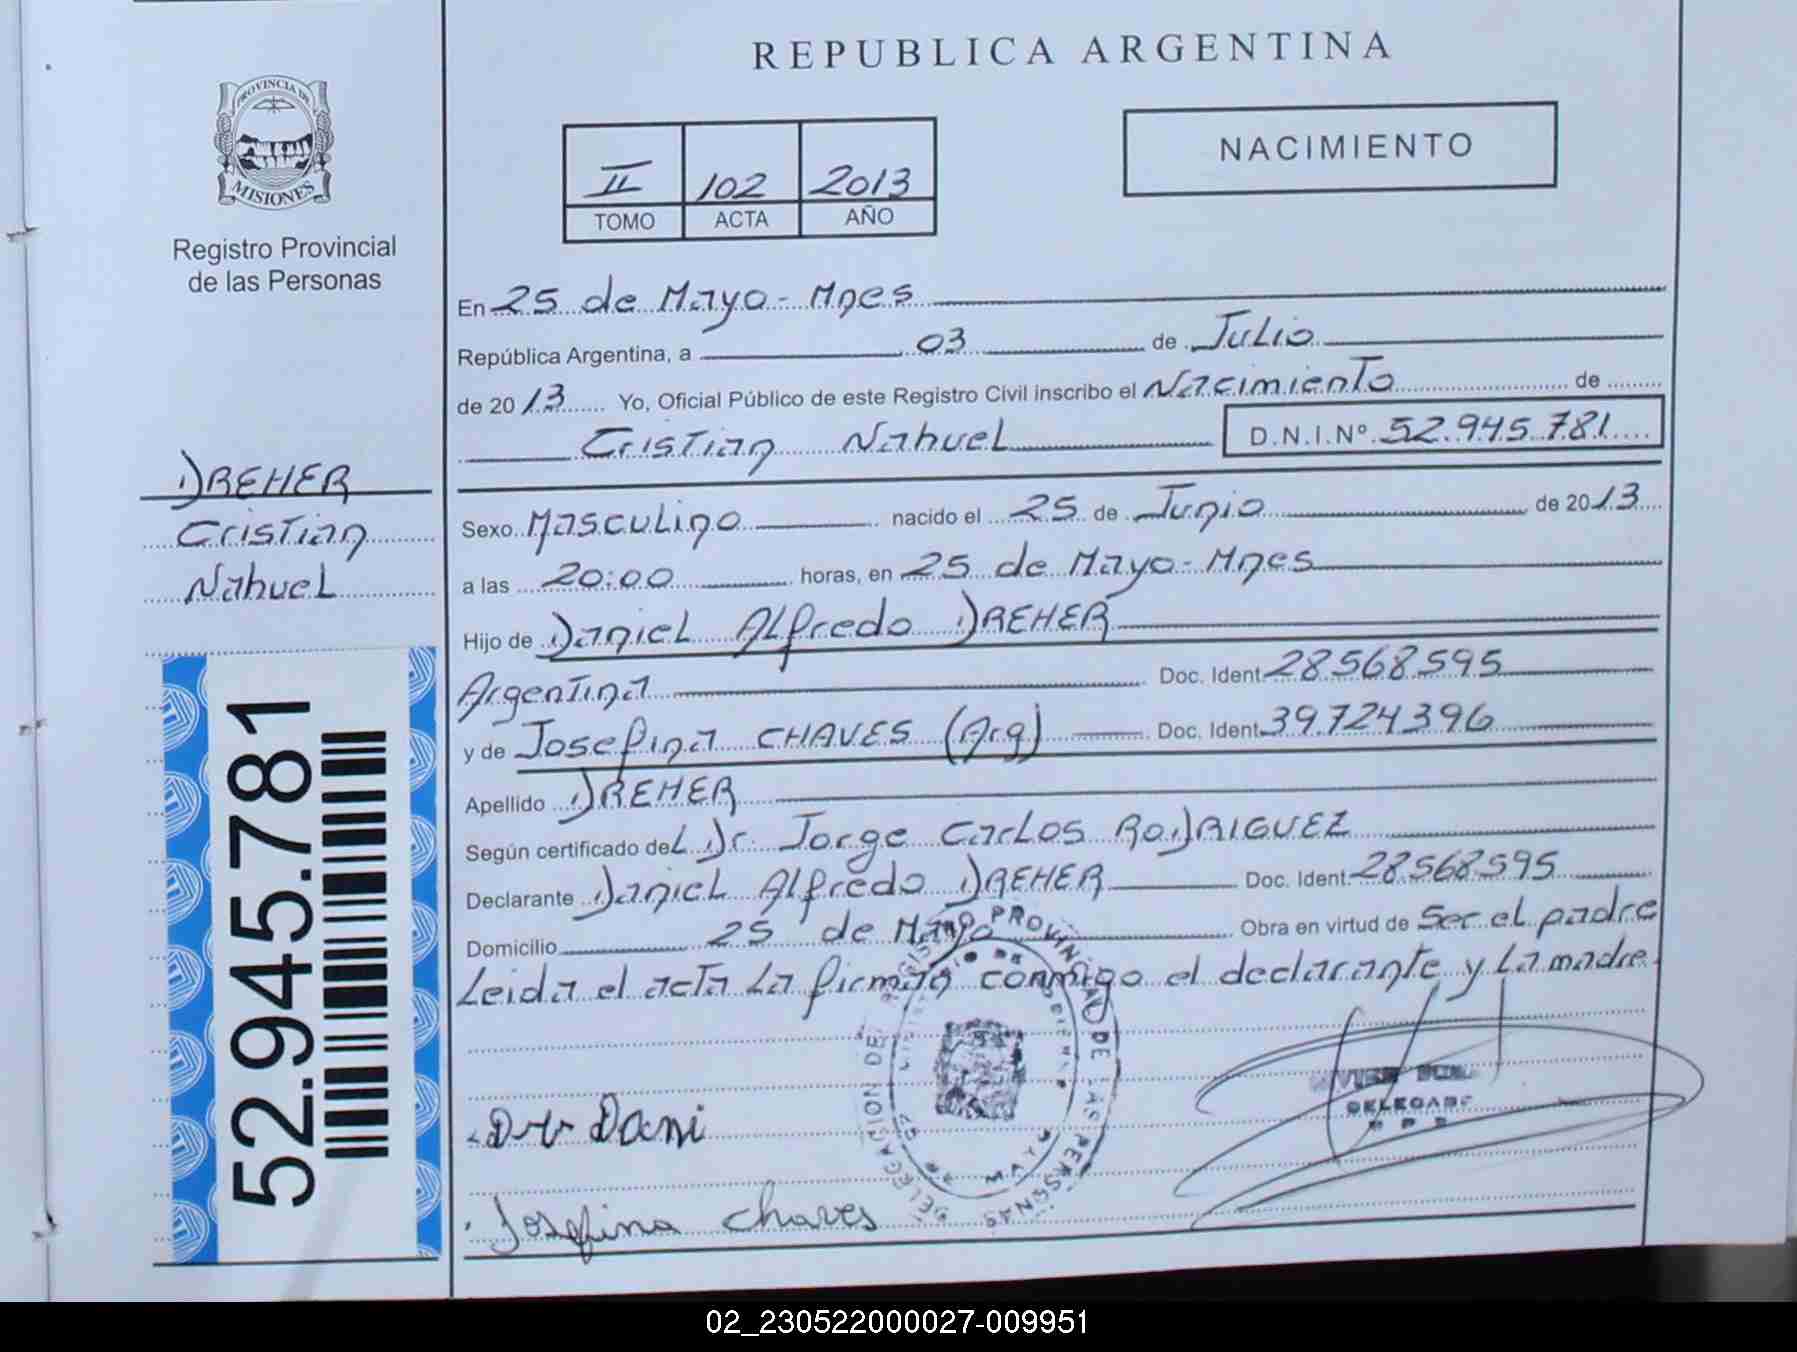 REPUBLICA ARGENTINA
PROVINCIA DE
MISIONES
Registro Provincial
de las Personas
II 102 2013
TOMO ACTA AÑO
NACIMIENTO
En 25 de Mayo - Mnes
República Argentina, a 03 de Julio
de 2013 Yo, Oficial Público de este Registro Civil inscribo el Nacimiento de
Cristian Nahuel D.N.I.Nº 52.945.781
DREHER
Cristian
Nahuel
Sexo Masculino nacido el 25 de Junio de 2013
a las 20:00 horas, en 25 de Mayo - Mnes
Hijo de Daniel Alfredo DREHER
Argentina Doc. Ident. 28.568.595
y de Josefina CHAVES (Arg) Doc. Ident. 39.724.396
Apellido DREHER
Según certificado del Dr. Jorge Carlos RODRIGUEZ
Declarante Daniel Alfredo DREHER Doc. Ident. 28.568.595
Domicilio 25 de Mayo Obra en virtud de Ser el padre
Leida el acta la firman conmigo el declarante y la madre.
52.945.781
DELEGACION DE REGISTRO PROVINCIAL DE LAS PERSONAS
DE MAYO
DELEGADO
Dani
Josefina Chaves
02_230522000027-009951